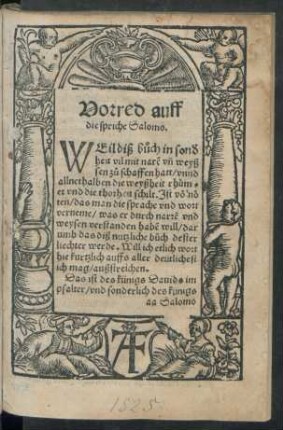 Vorred auff
die spriche Salomo.
WEil diß bůch in sond
hey vil mit narẽ vñ weyß
sen zů schaffen hatt / vnnd
allnethalben die weyßheit rhům-
et vnd die thorheyt schilt. Ist võ nö
ten / das man die sprache vnd wort
verneme / was er durch narrẽ vnd
weysen verstanden habẽ will / dar
umb das diß nutzliche bůch dester
liechter werde. Will ich etlich wort
hie kurtzlich auffs aller deutlichest
ich mag / außstreichen.
Das ist des künigs Dauids im
psalter / vnd sonderlich des künigs
aa Salomo
AF
1525.